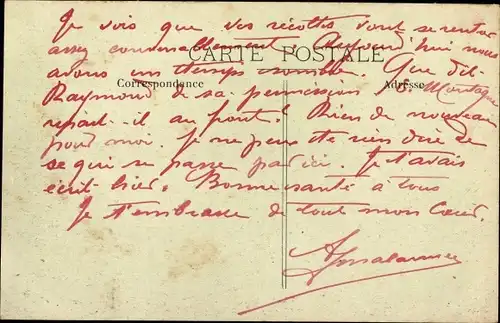 Je vois que vos récoltes vont se rentrer
assez convenablement. Aujourd'hui nous
CARTE POSTALE
avons un temps sombre. Que dit-
Correspondance
Adresse
Raymond de sa permission
repart-il au front! Rien de nouveau
pour moi. Je ne peux te rien dire de
ce qui se passe par ici. Je t'avais
écrit hier. Bonne santé à tous
Je t'embrasse de tout mon Cœur.